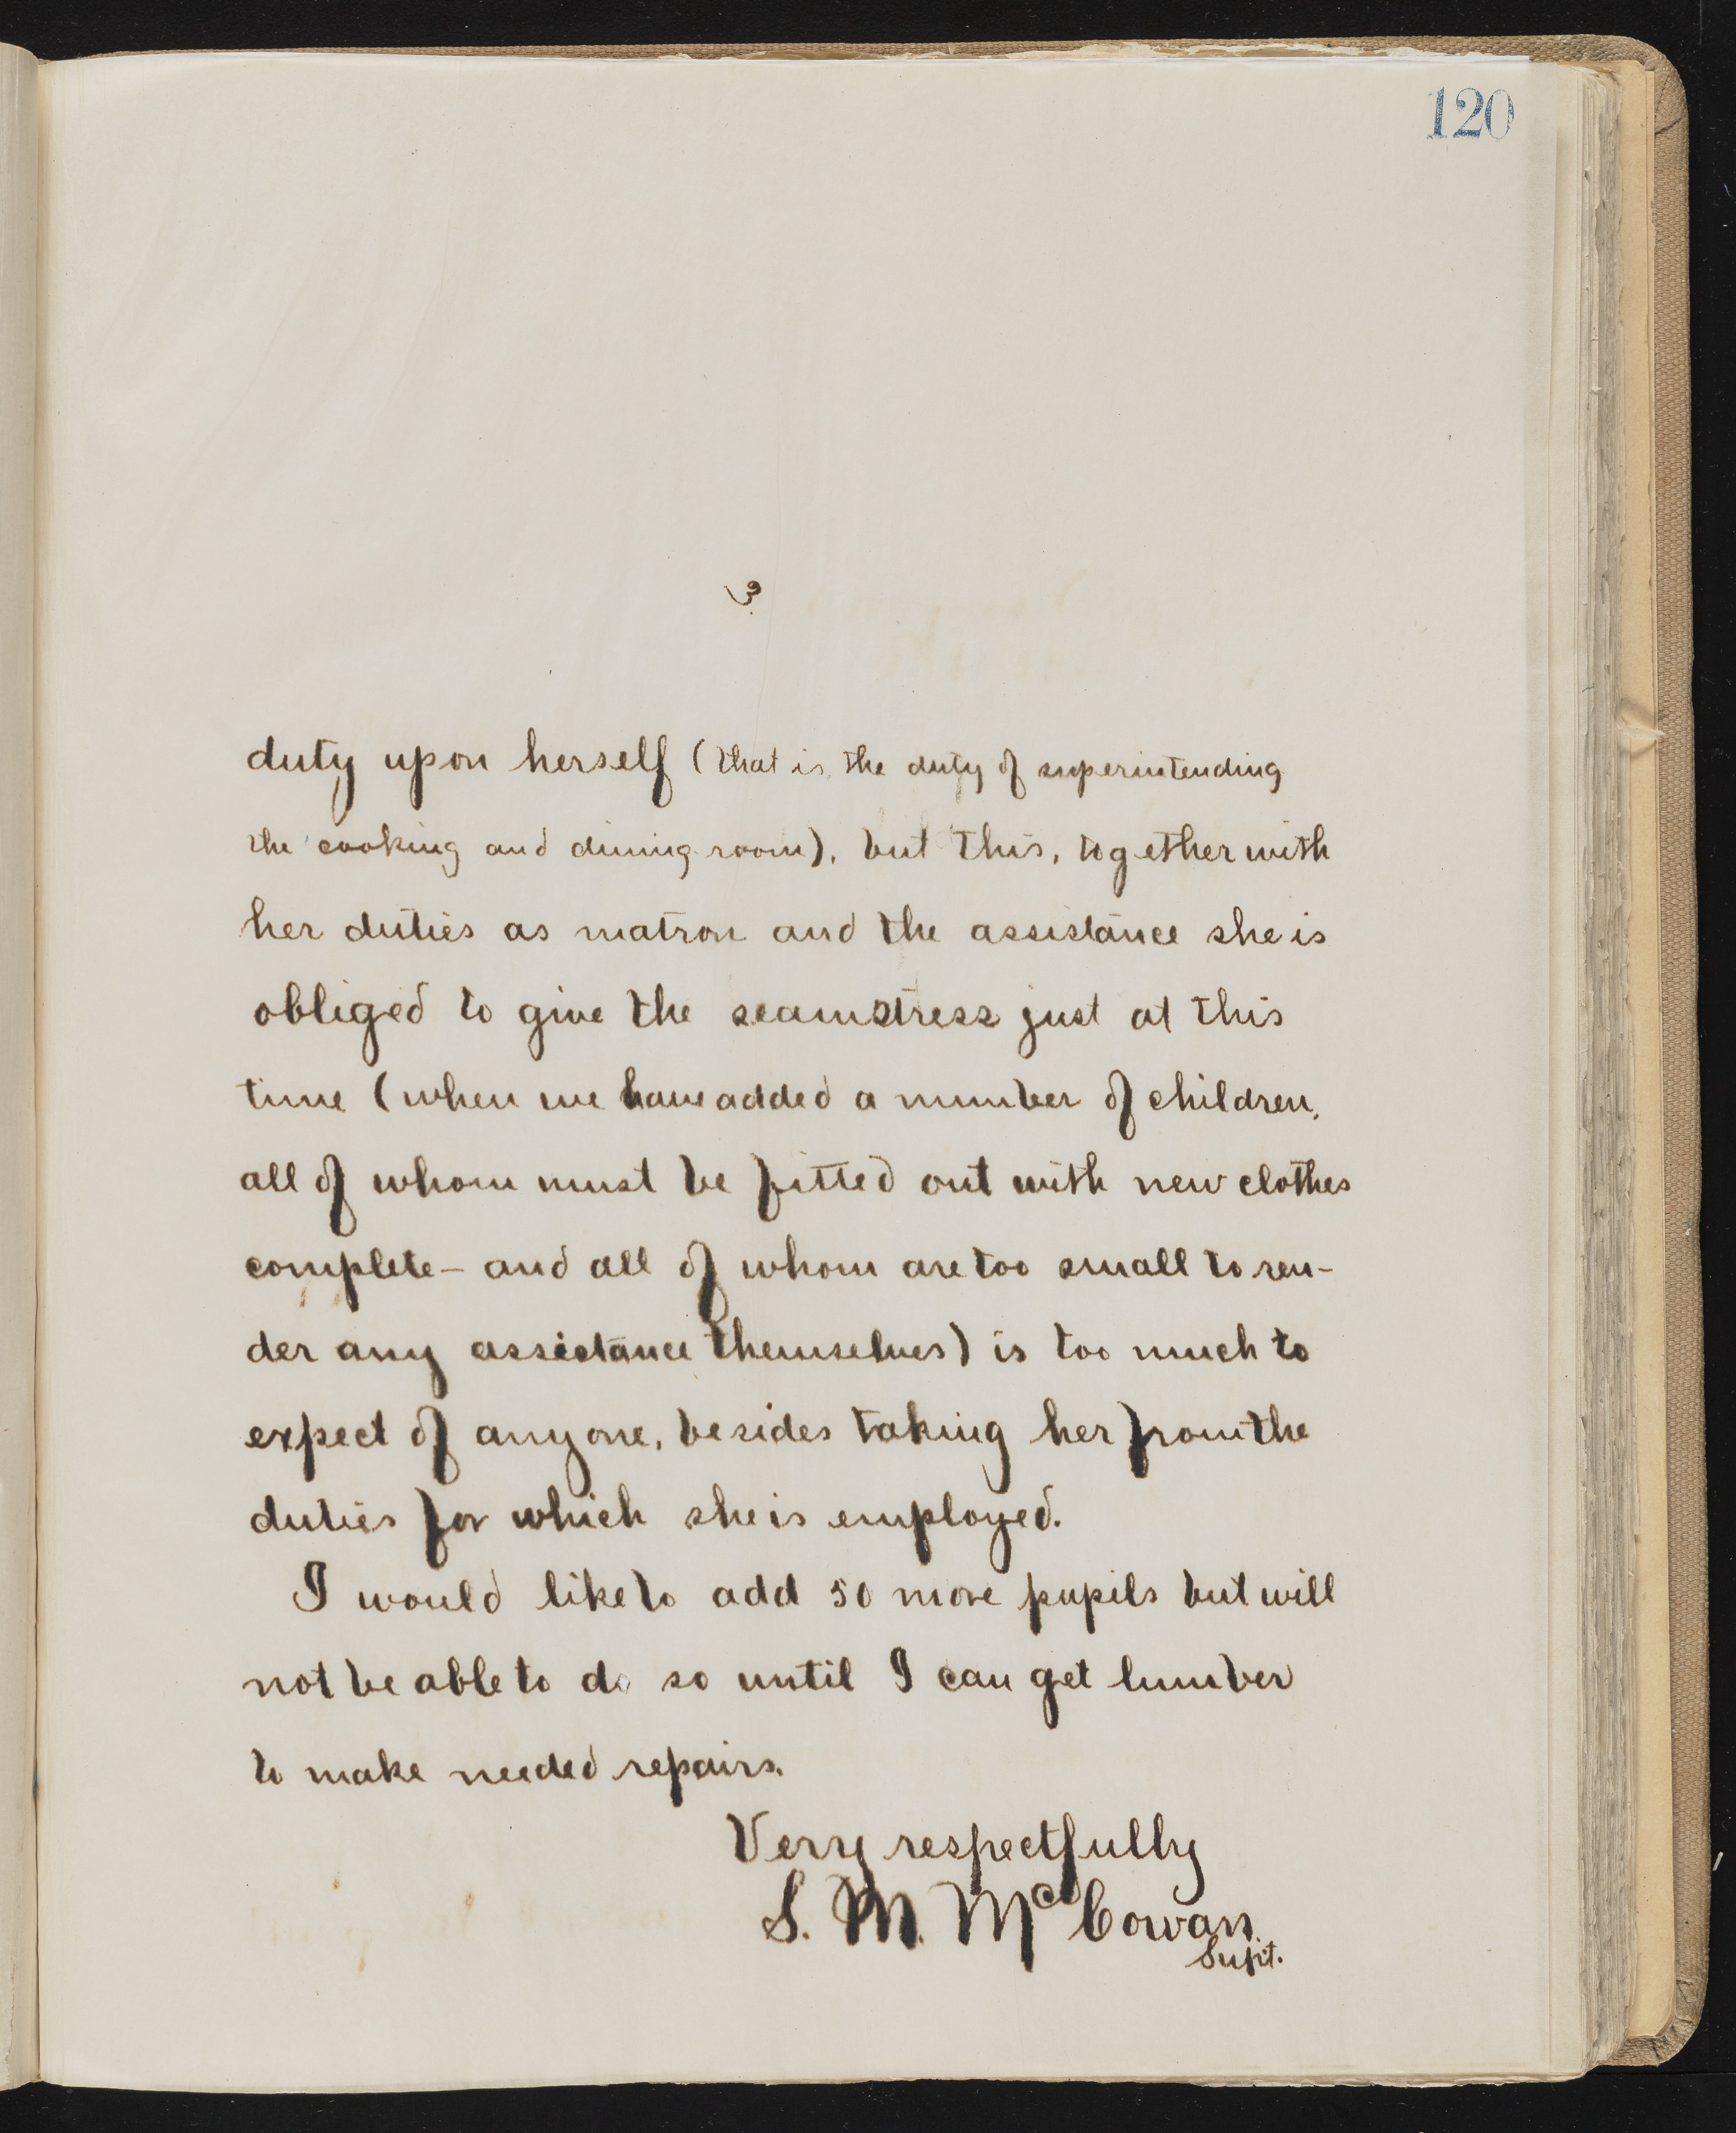 120
3
duty upon herself (that is, the duty of superintending
the cooking and dining room), but this, together with
her duties as matron and the assistance she is
obliged to give the seamstress just at this
time (when we have added a number of children,
all of whom must be fitted out with new clothes
complete - and all of whom are too small to ren-
der any assistance themselves) is too much to
expect of anyone, besides taking her from the
duties for which she is employed.
I would like to add 50 more pupils but will
not be able to do so until I can get lumber
to make needed repairs.
Very respectfully
S. M. McCowan
Supt.